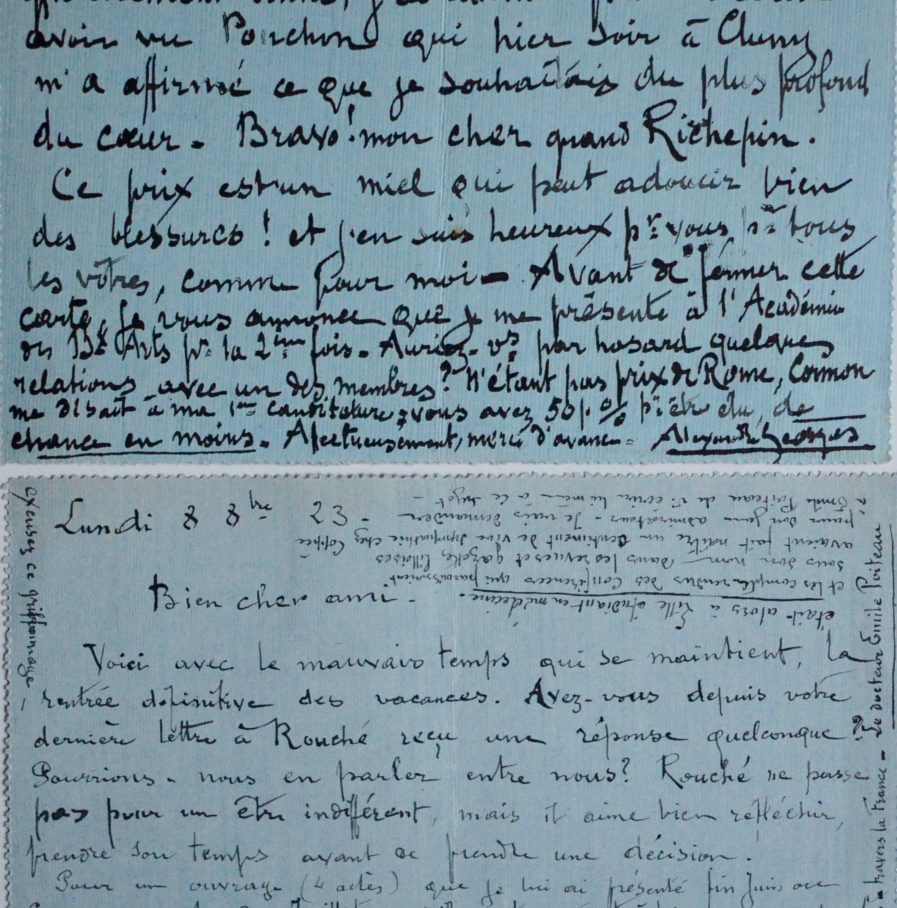 avoir vu Ponchon qui hier soir à Cluny
m'a affirmé ce que je souhaitais du plus profond
du cœur - Bravo! mon cher grand Richepin.
Ce prix est un miel qui peut adoucir bien
des blessures! et j'en suis heureux pr vous pr tous
les vôtres, comme pour moi - Avant de fermer cette
carte, je vous annonce que je me présente à l'Académie
des Bx Arts pr la 2ème fois - Auriez-vs par hasard quelques
relations avec un des membres? N'étant pas prix de Rome, Cormon
me disait à ma 1ère candidature : vous avez 50 p. % pr être élu, de
chance en moins - Affectueusement, merci d'avance - Alexandre Georges
Lundi 8 8bre 23 -
Bien cher ami -
Voici avec le mauvais temps qui se maintient, la
rentrée définitive des vacances. Avez-vous depuis votre
dernière lettre à Rouché reçu une réponse quelconque?
Pourrions-nous en parler entre nous? Rouché ne passe
pas pour un être indifférent, mais il aime bien réfléchir,
prendre son temps avant de prendre une décision.
Pour un ouvrage (4 actes) que je lui ai présenté fin Juin ou
excusez ce griffonnage,
à travers la France - Le docteur Emile Poiteau
était alors à Lille étudiant en médecine -
et les comptes rendus des Conférences qui paraissaient
sous son nom dans les revues et gazette lilloises
avaient fait naître un sentiment de vive sympathie chez Coppée
pour son jeune admirateur - Je vais demander
à Emile Poiteau de vs écrire lui même à ce sujet -